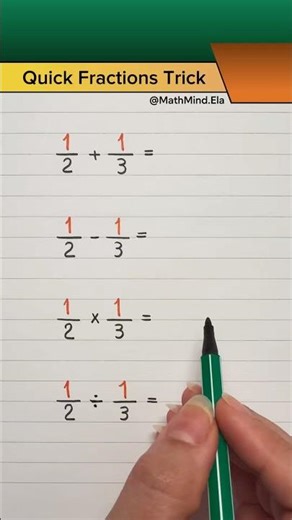 Quick Fractions Trick
@MathMind.Ela
1/2 + 1/3 =
1/2 - 1/3 =
1/2 x 1/3 =
1/2 ÷ 1/3 =